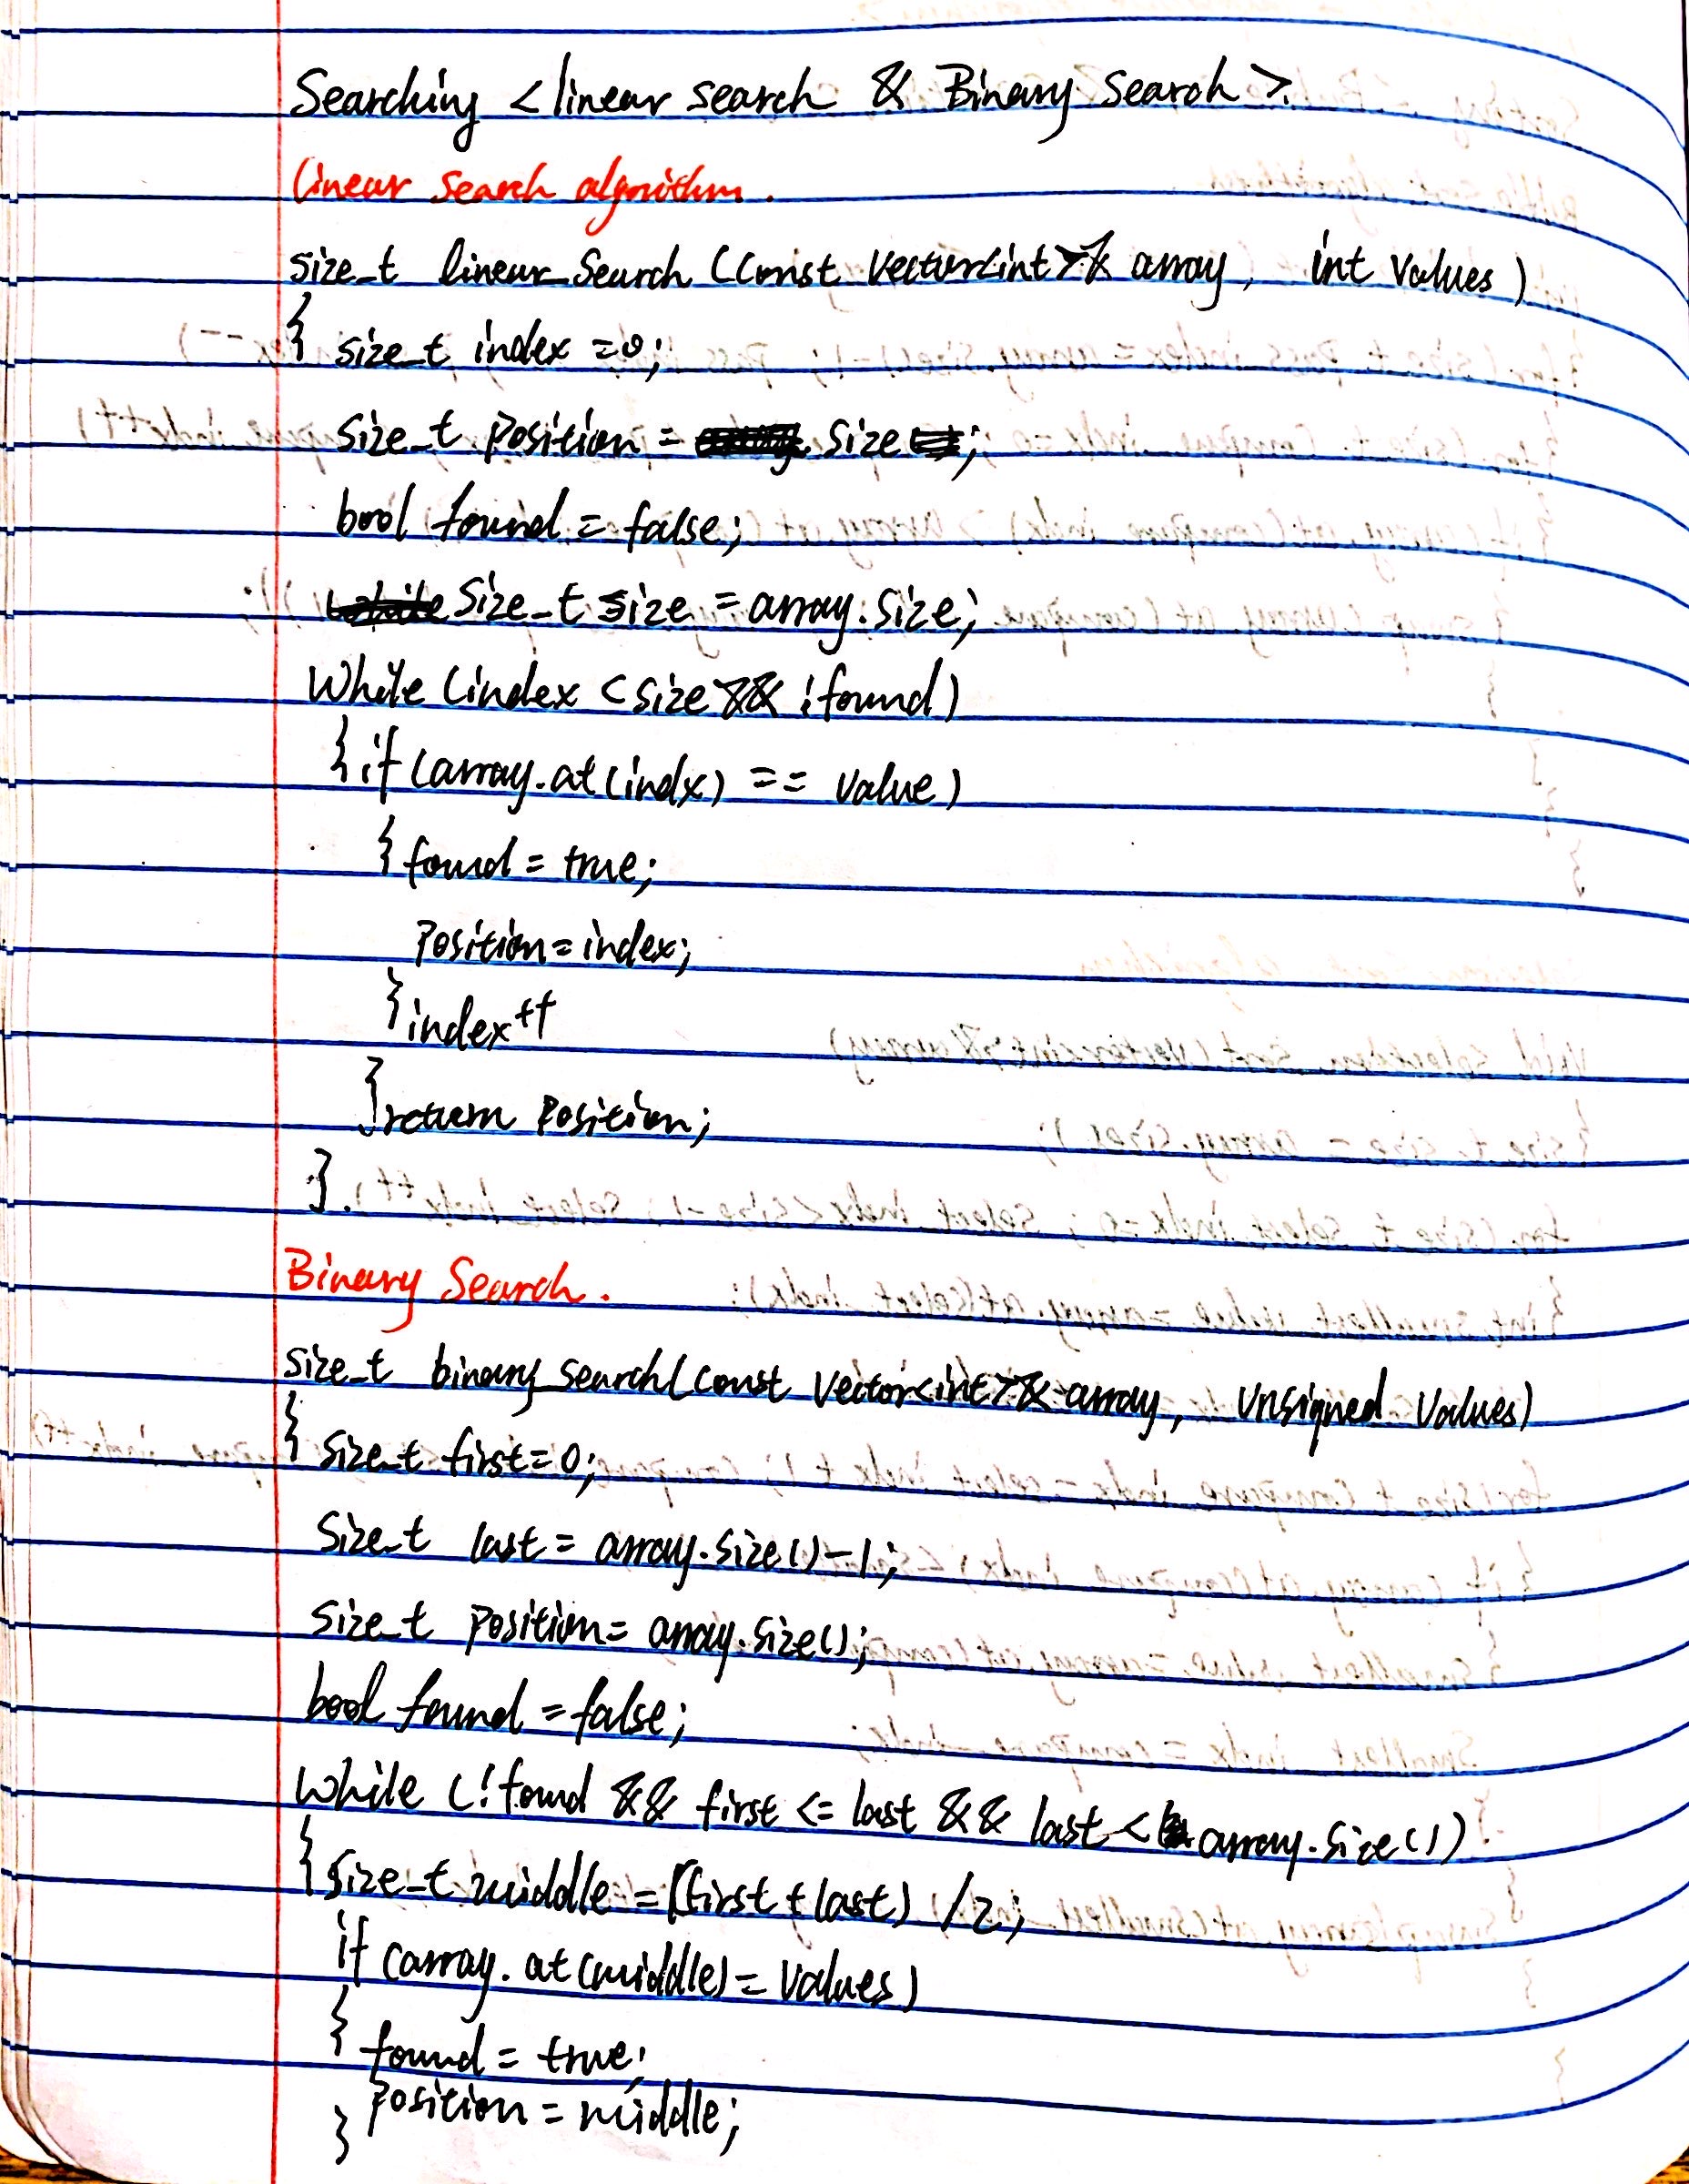 Searching <linear search & Binary Search>.
linear search algorithm.
size_t linear_Search (const vector<int>& array, int values)
{ size_t index =0;
size_t position = size ;
bool found = false;
size_t size = array.size;
while (index < size && !found)
{ if (array.at(indx) == value)
{ found = true;
position = index;
} index++
} return position;
}.
Binary Search.
size_t binary_search(const vector<int>& array, unsigned values)
{ size_t first=0;
size_t last = array.size()-1;
size_t position= array.size();
bool found = false;
while (!found && first <= last && last < array.size())
{ size_t middle = (first + last) /2;
if (array.at(middle) = values)
{ found = true;
position = middle;
}